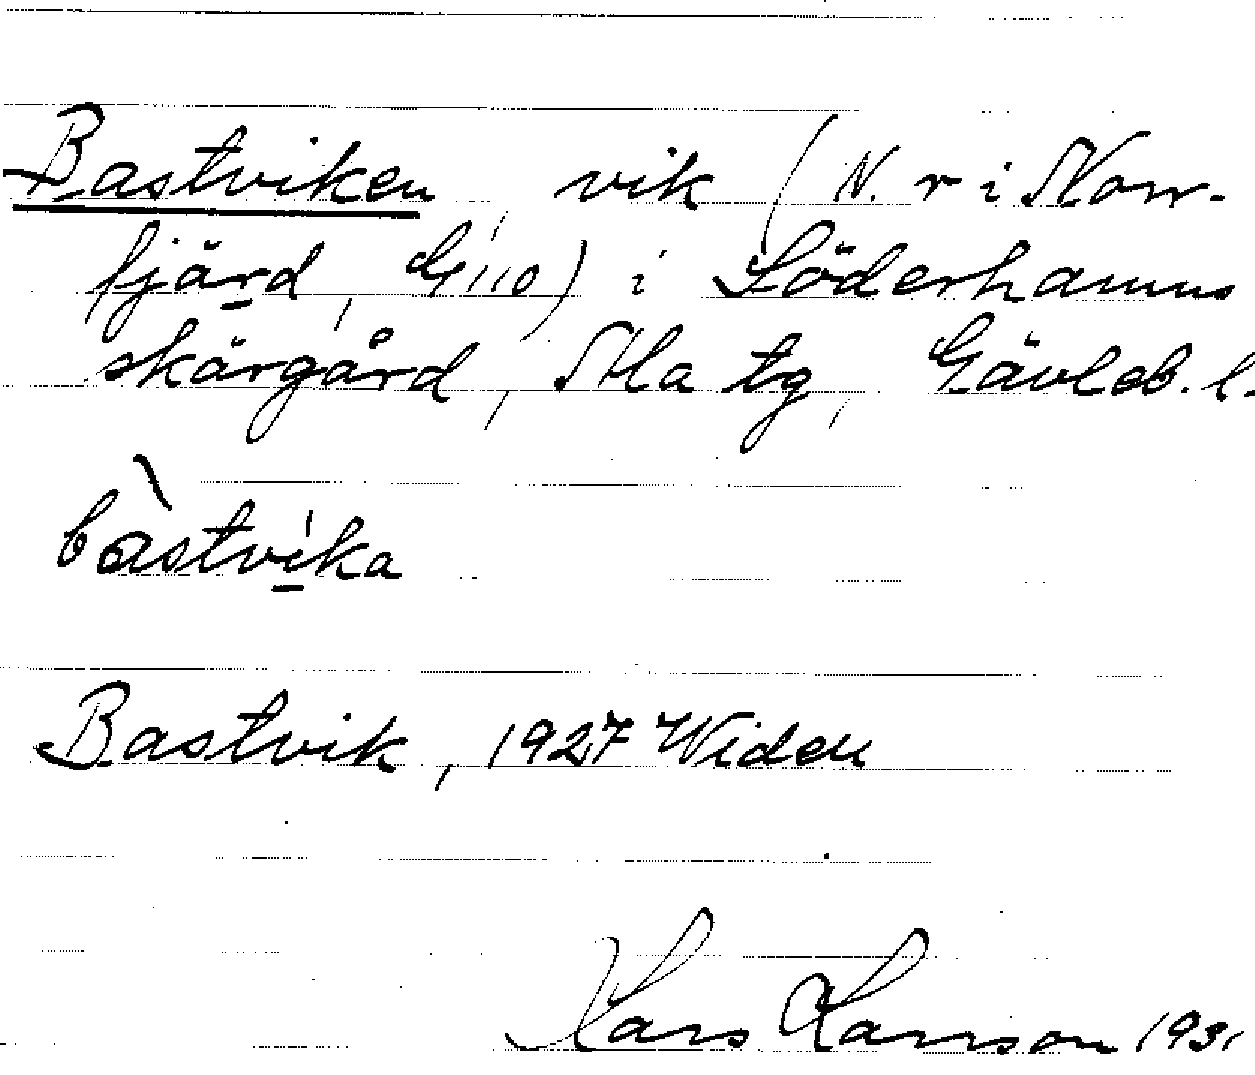 Bastviken, vik (N. r i Norr-
fjärd, G 110) i Söderhamns
skärgård, Ala tg, Gävleb. l.
bàstvíka
Bastvik, 1927 Widen
Lars Larsson 1931